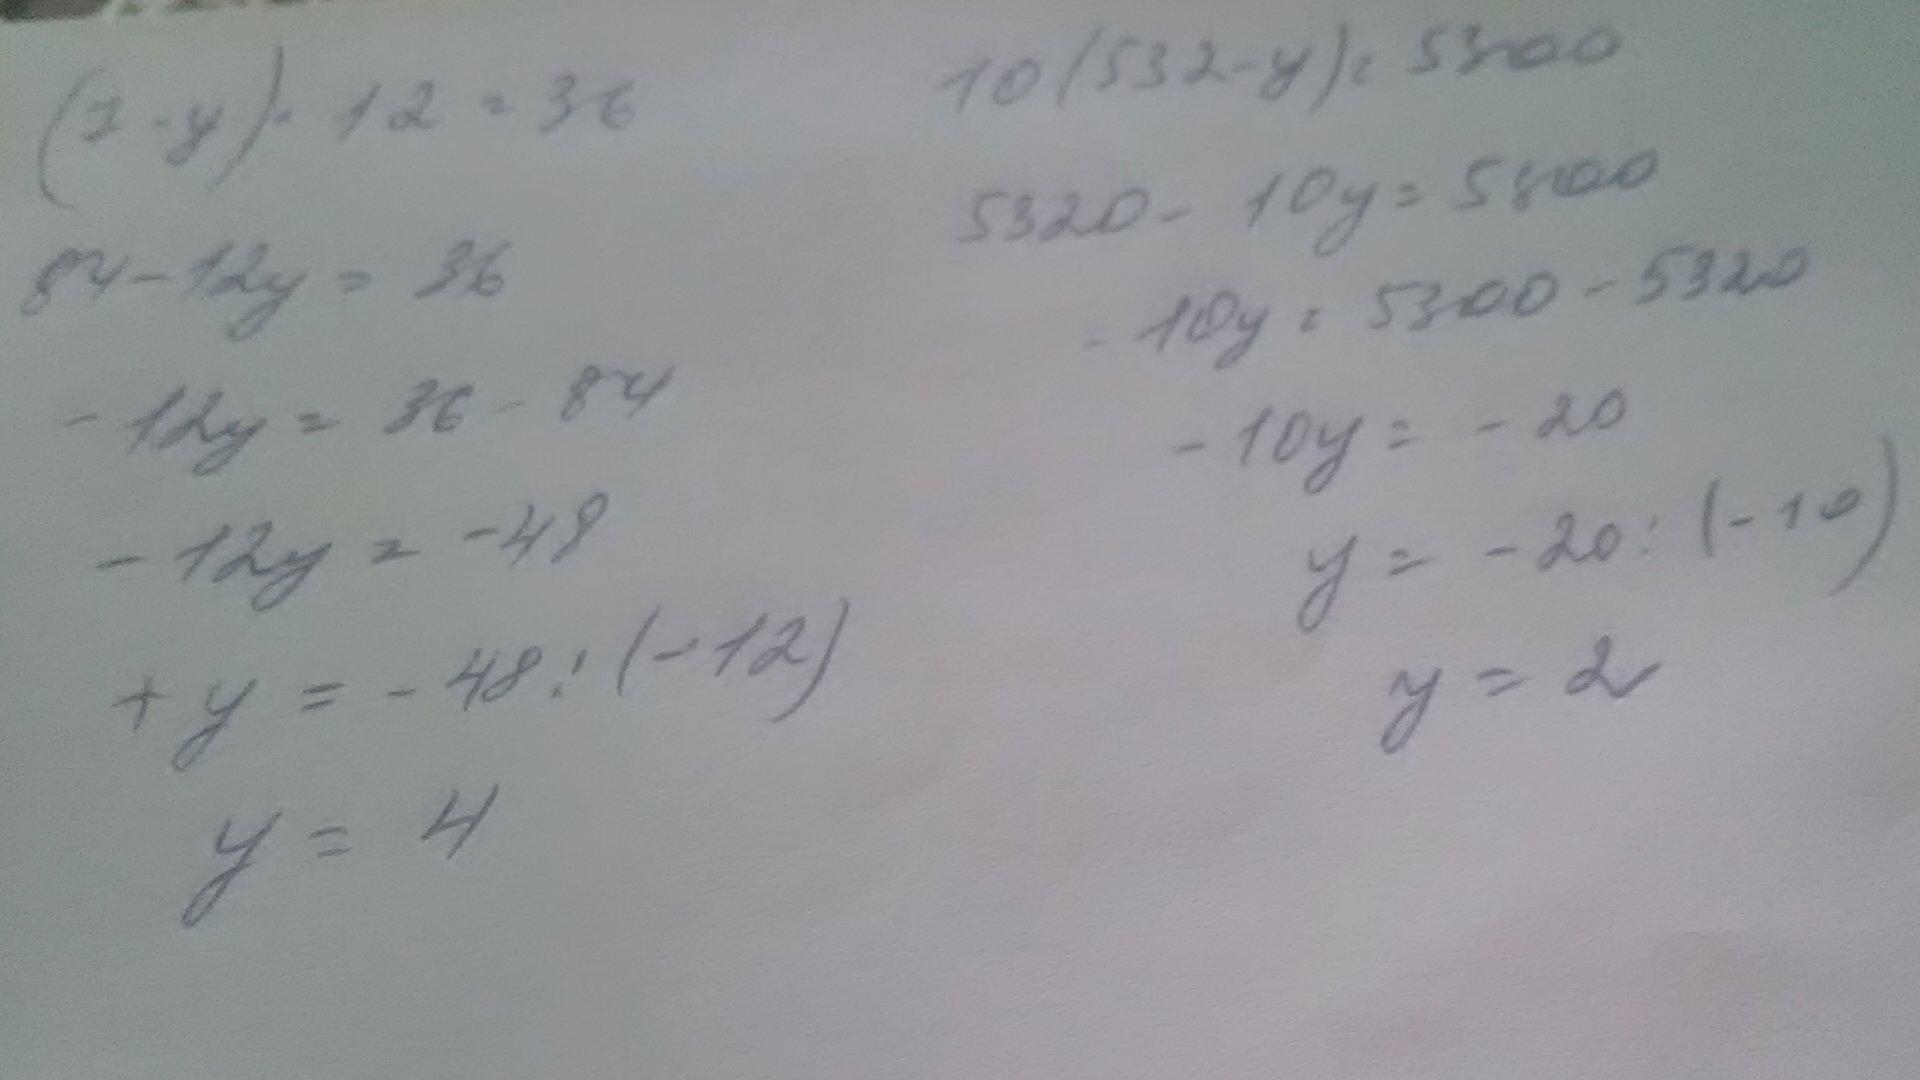 (7-y)·12=36
84-12y=36
-12y=36-84
-12y=-48
+y=-48:(-12)
y=4
10(532-y)=5300
5320-10y=5300
-10y=5300-5320
-10y=-20
y=-20:(-10)
y=2